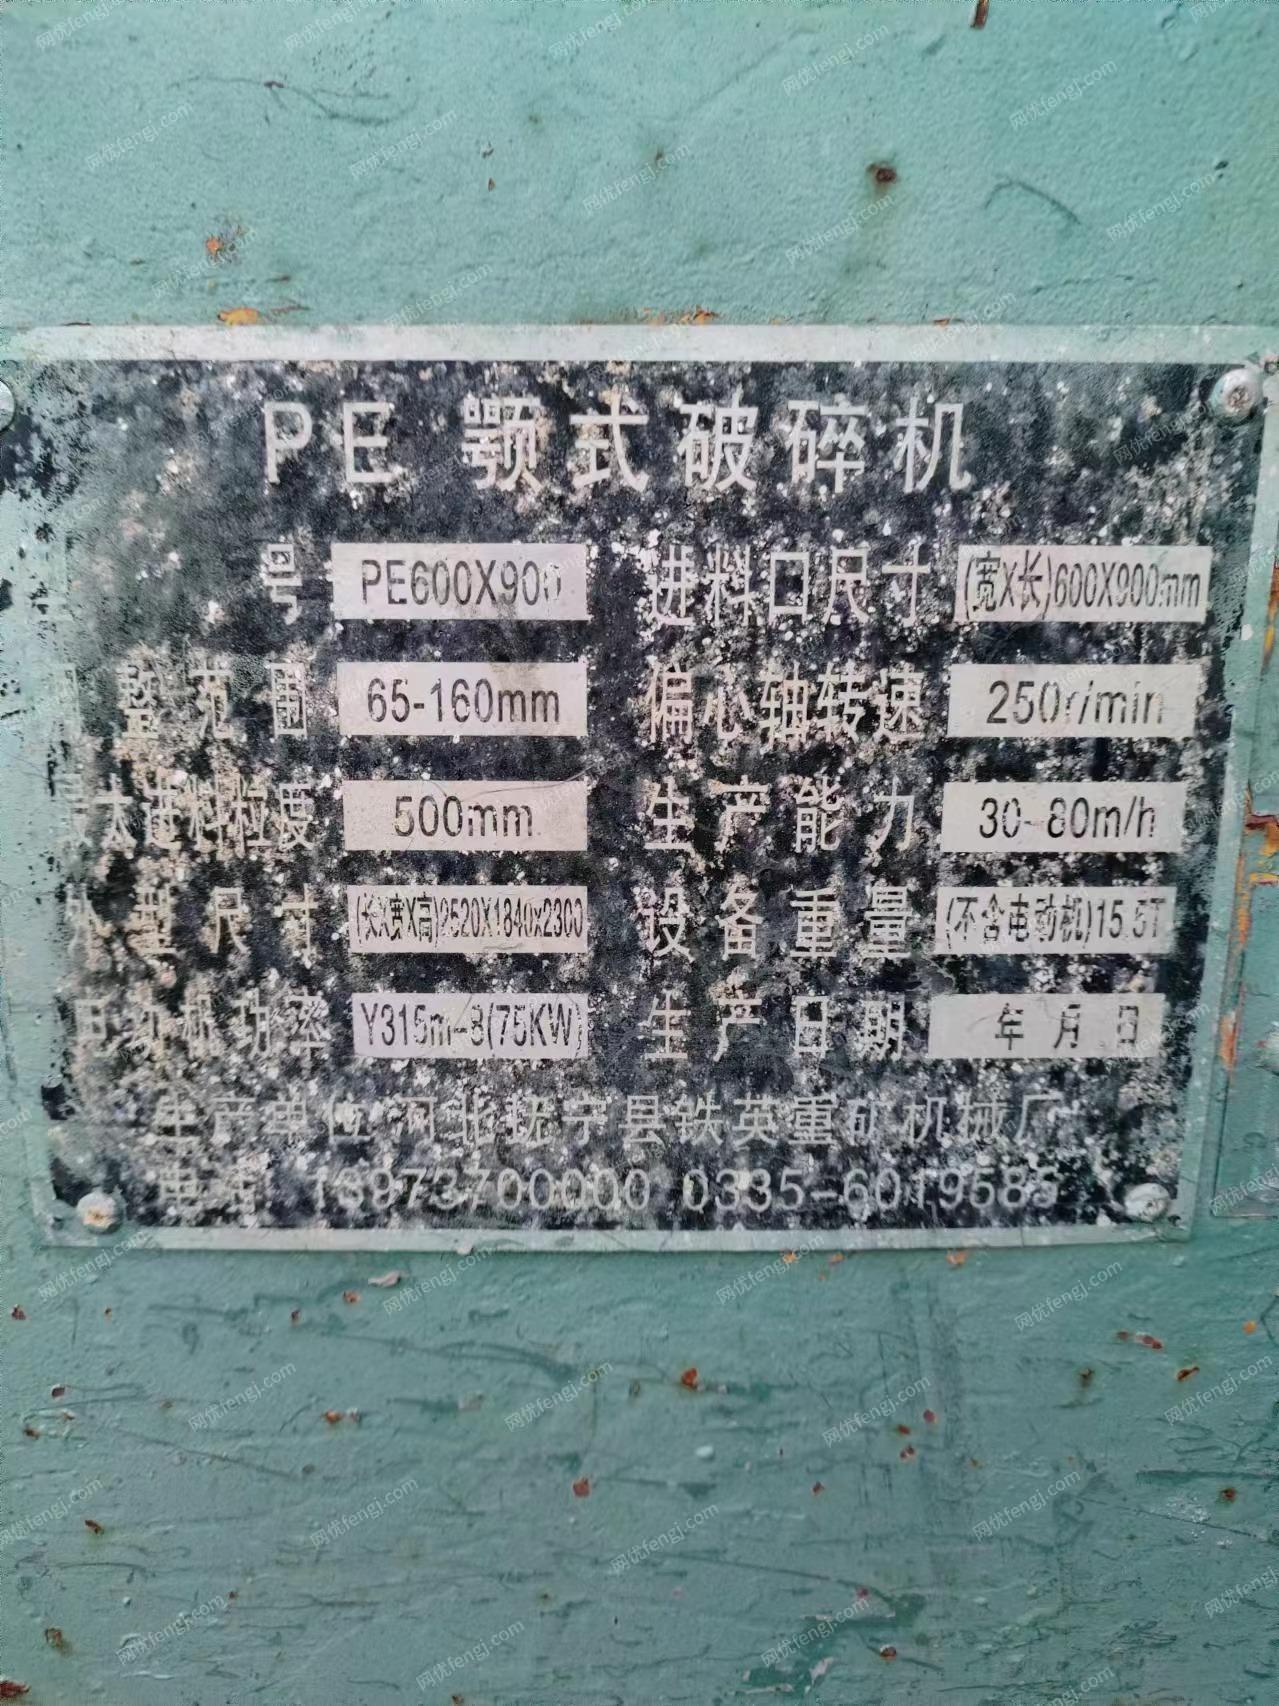 PE 颚式破碎机
号 PE600X900 进料口尺寸 (宽X长)600X900mm
整范围 65-160mm 偏心轴转速 250r/min
最大进料粒度 500mm 生产能力 30-80m/h
外型尺寸 (长X宽X高)2520X1840x2300 设备重量 (不含电动机)15.5T
电动机功率 Y315m-8(75KW) 生产日期 年 月 日
生产单位 河北抚宁县铁英重矿机械厂
电话 13973700000 0335-6019585
网优fengj.com